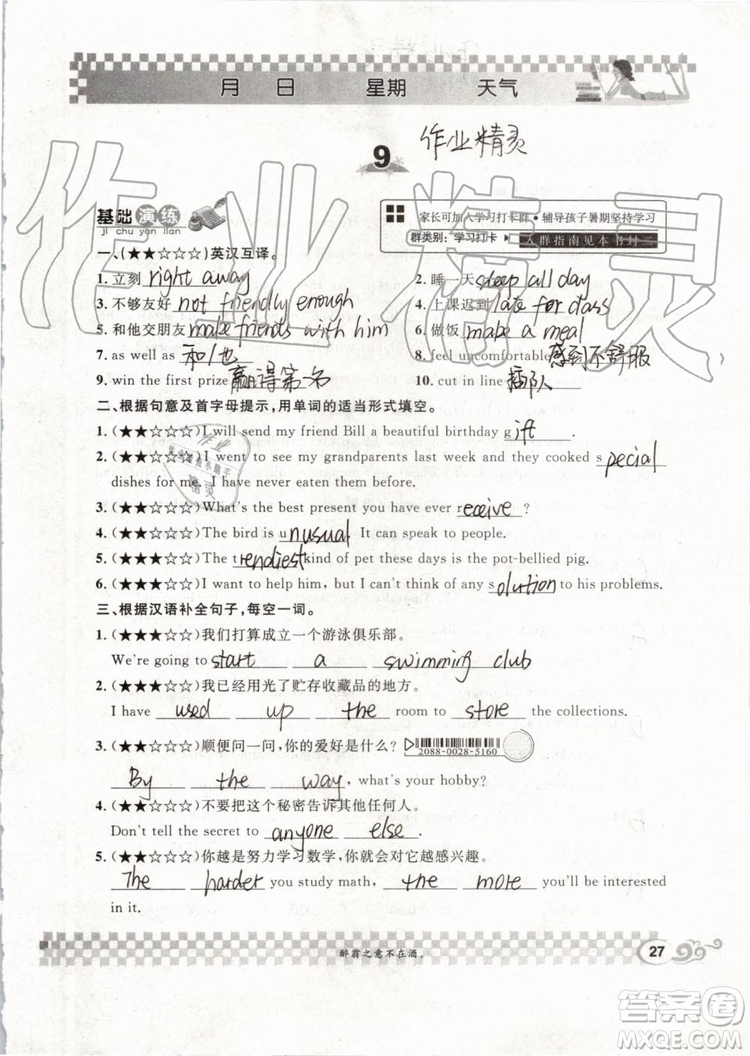 月 日 星期 天气
9 作业精灵
基础演练
ji chu yan lian
家长可加入学习打卡群·辅导孩子暑期坚持学习
群类别:学习打卡 入群指南见本书封二
一、(★★☆☆☆)英汉互译。
1. 立刻 right away 2. 睡一天 sleep all day
3. 不够友好 not friendly enough 4. 上课迟到 late for class
5. 和他交朋友 make friends with him 6. 做饭 make a meal
7. as well as 和/也 8. feel uncomfortable 感到不舒服
9. win the first prize 赢得第一名 10. cut in line 插队
二、根据句意及首字母提示,用单词的适当形式填空。
1. (★★☆☆☆)I will send my friend Bill a beautiful birthday gift.
2. (★★☆☆☆)I went to see my grandparents last week and they cooked special
dishes for me. I have never eaten them before.
3. (★★☆☆☆)What's the best present you have ever receive?
4. (★★☆☆☆)The bird is unusual. It can speak to people.
5. (★★☆☆☆)The trendiest kind of pet these days is the pot-bellied pig.
6. (★★☆☆☆)I want to help him, but I can't think of any solution to his problems.
三、根据汉语补全句子,每空一词。
1. (★★☆☆☆)我们打算成立一个游泳俱乐部。
We're going to start a swimming club
2. (★★☆☆☆)我已经用光了贮存收藏品的地方。
I have used up the room to store the collections.
3. (★★☆☆☆)顺便问一问,你的爱好是什么?
2088-0028-5160
By the way, what's your hobby?
4. (★★☆☆☆)不要把这个秘密告诉其他任何人。
Don't tell the secret to anyone else.
5. (★★☆☆☆)你越是努力学习数学,你就会对它越感兴趣。
The harder you study math, the more you'll be interested
in it.
醉翁之意不在酒。
27
作业精灵
答案圈
MXQE.COM